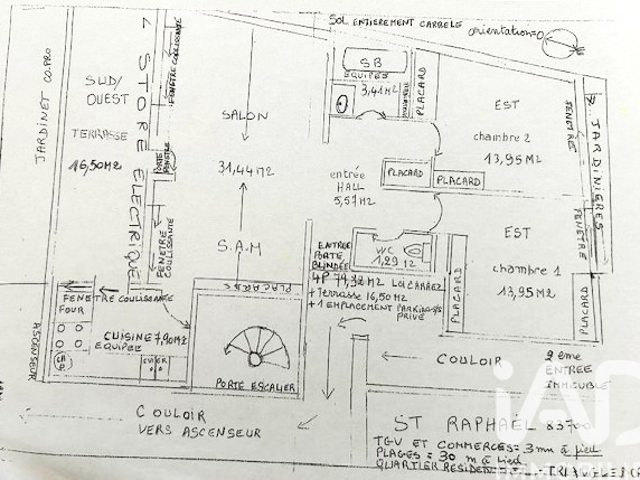 SOL ENTIEREMENT CARRELE
orientation=0
JARDINET CO.PRO
SUD/
OUEST
TERRASSE
16,50M2
STORE ELECTRIQUE
FENETRE COULISSANTE
PORTE FENETRE
FENETRE COULISSANTE
SALON
31,44M2
S.A.M
SB
EQUIPÉE
3,41M2
PLACARD
EST
chambre 2
13,95 M2
FENETRE
JARDINIERES
entrée
HALL
5,57M2
PLACARD
PLACARD
WC
1,29M2
EST
chambre 1
13,95 M2
FENETRE
PLACARD
PLACARD
ENTREE
PORTE
BLINDÉE
4P 79,32 M2 Loi CARREZ
+Terrasse 16,50 M2
+1 EMPLACEMENT PARKING
PRIVE
PLACARDS
FENETRE COULISSANTE
FOUR
CUISINE 7,90M2
EQUIPÉE
EVIER
ASCENSEUR
PORTE ESCALIER
COULOIR
2eme
ENTREE
IMMEUBLE
COULOIR
VERS ASCENSEUR
ST RAPHAËL 83700
TGV ET COMMERCES=3mn à pied
PLAGES=30 m à pied
QUARTIER
iAD